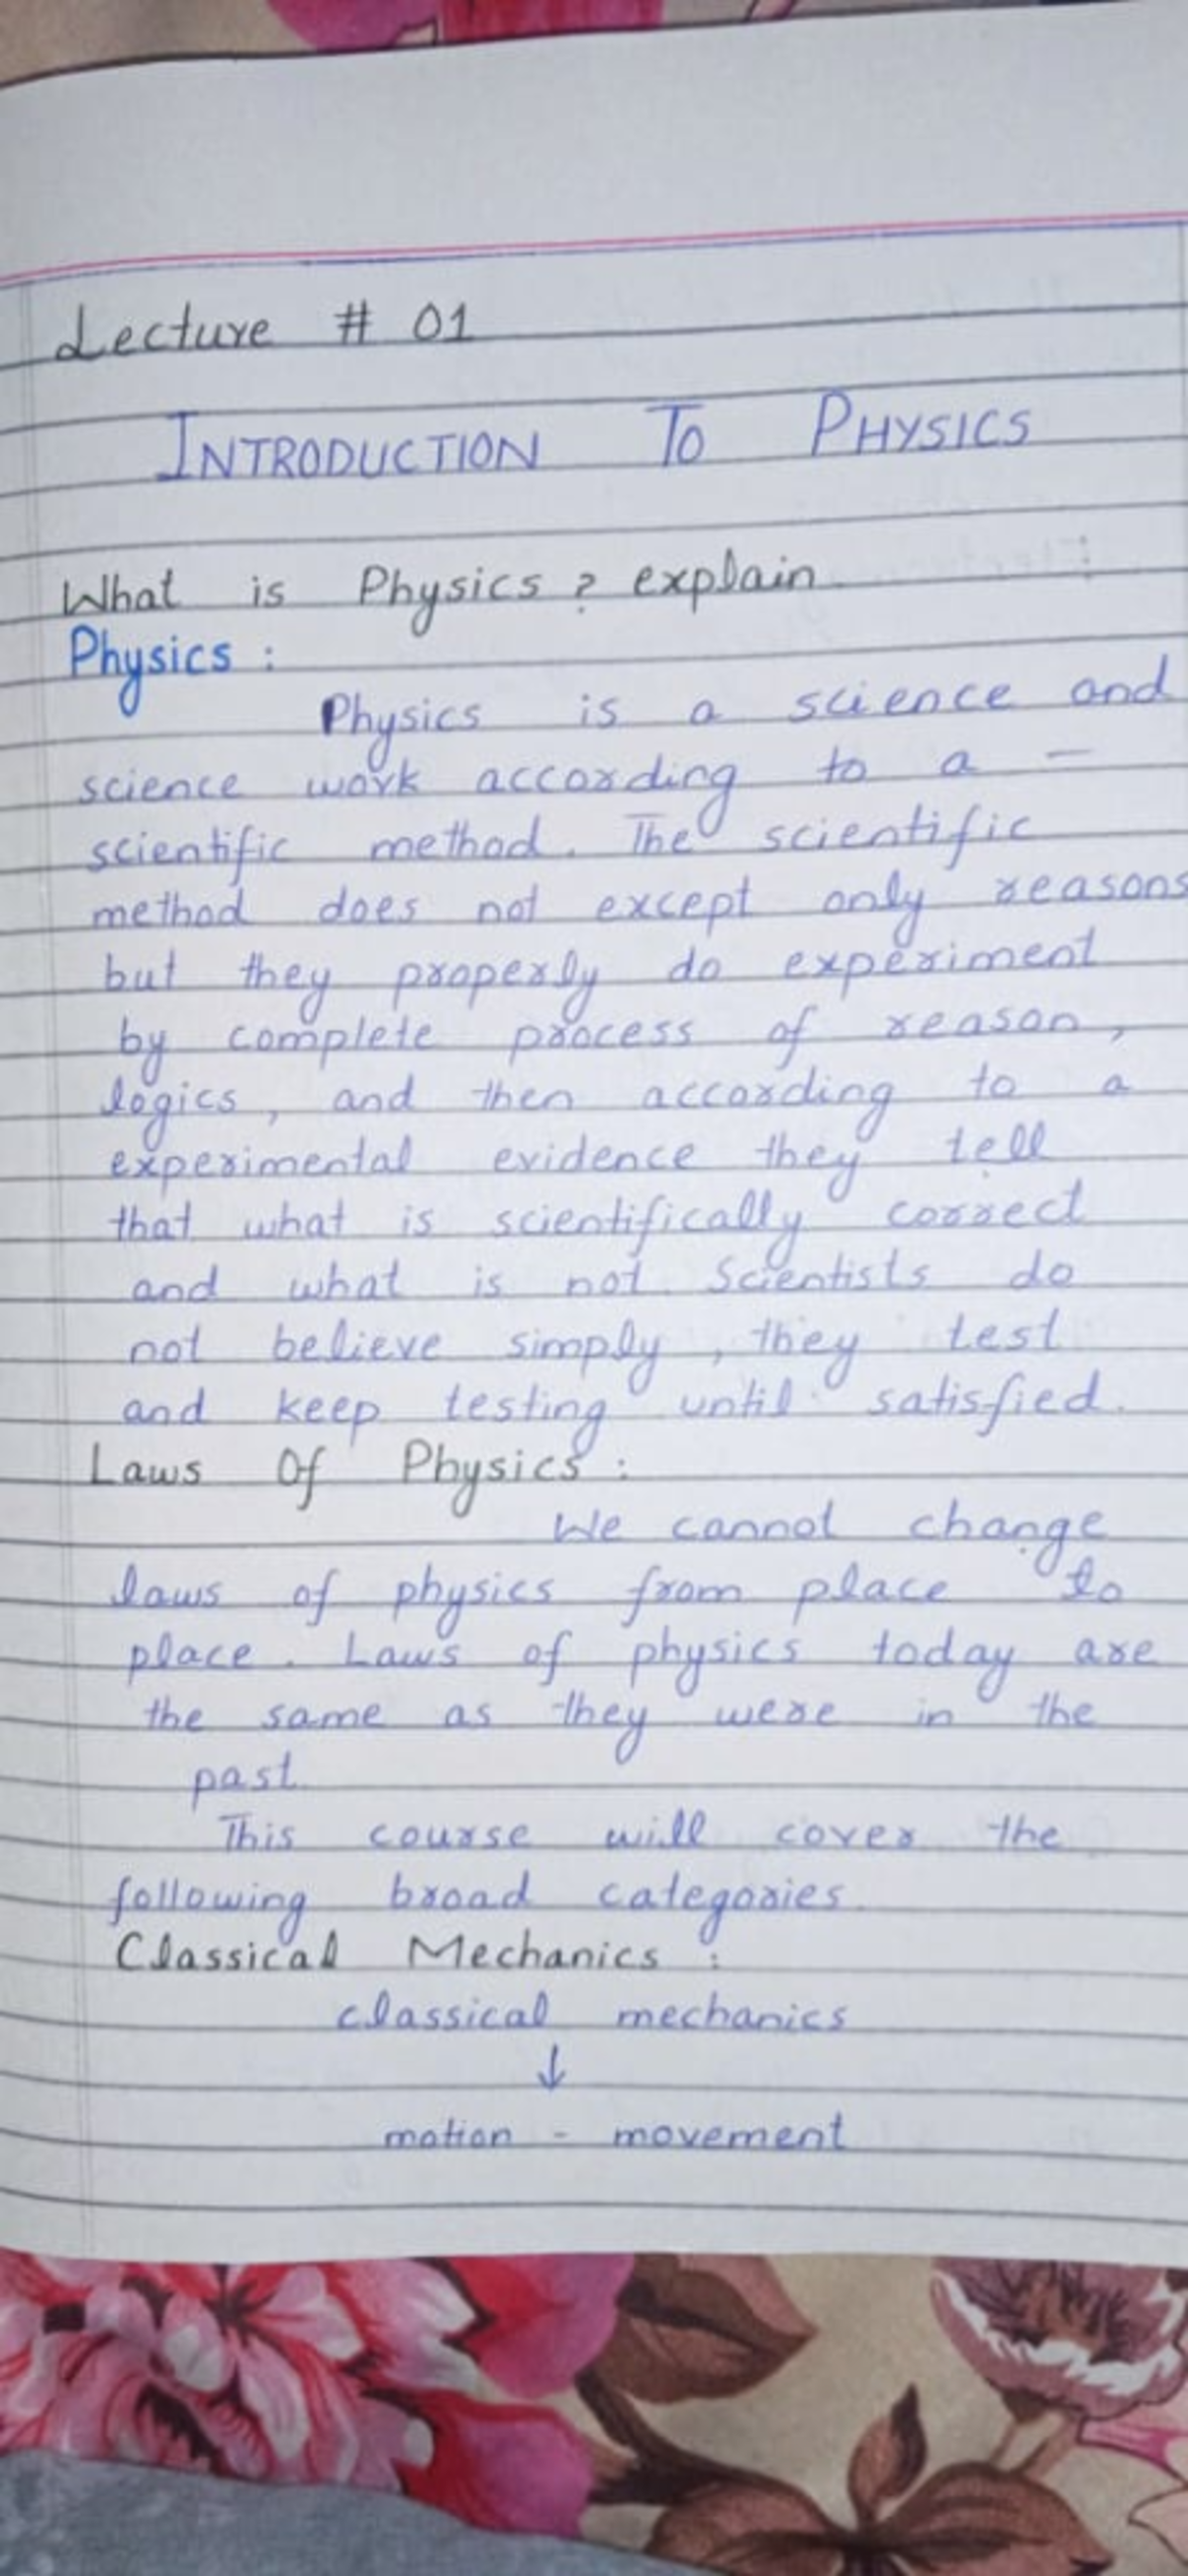 Lecture # 01
INTRODUCTION TO PHYSICS
What is Physics? explain
Physics :
Physics is a science and
science work according to a —
scientific method. The scientific
method does not except only reasons
but they properly do experiment
by complete process of reason,
logics, and then according to a
experimental evidence they tell
that what is scientifically correct
and what is not. Scientists do
not believe simply, they test
and keep testing until satisfied.
Laws Of Physics :
We cannot change
laws of physics from place to
place. Laws of physics today are
the same as they were in the
past.
This course will cover the
following broad categories.
Classical Mechanics :
classical mechanics
↓
motion - movement